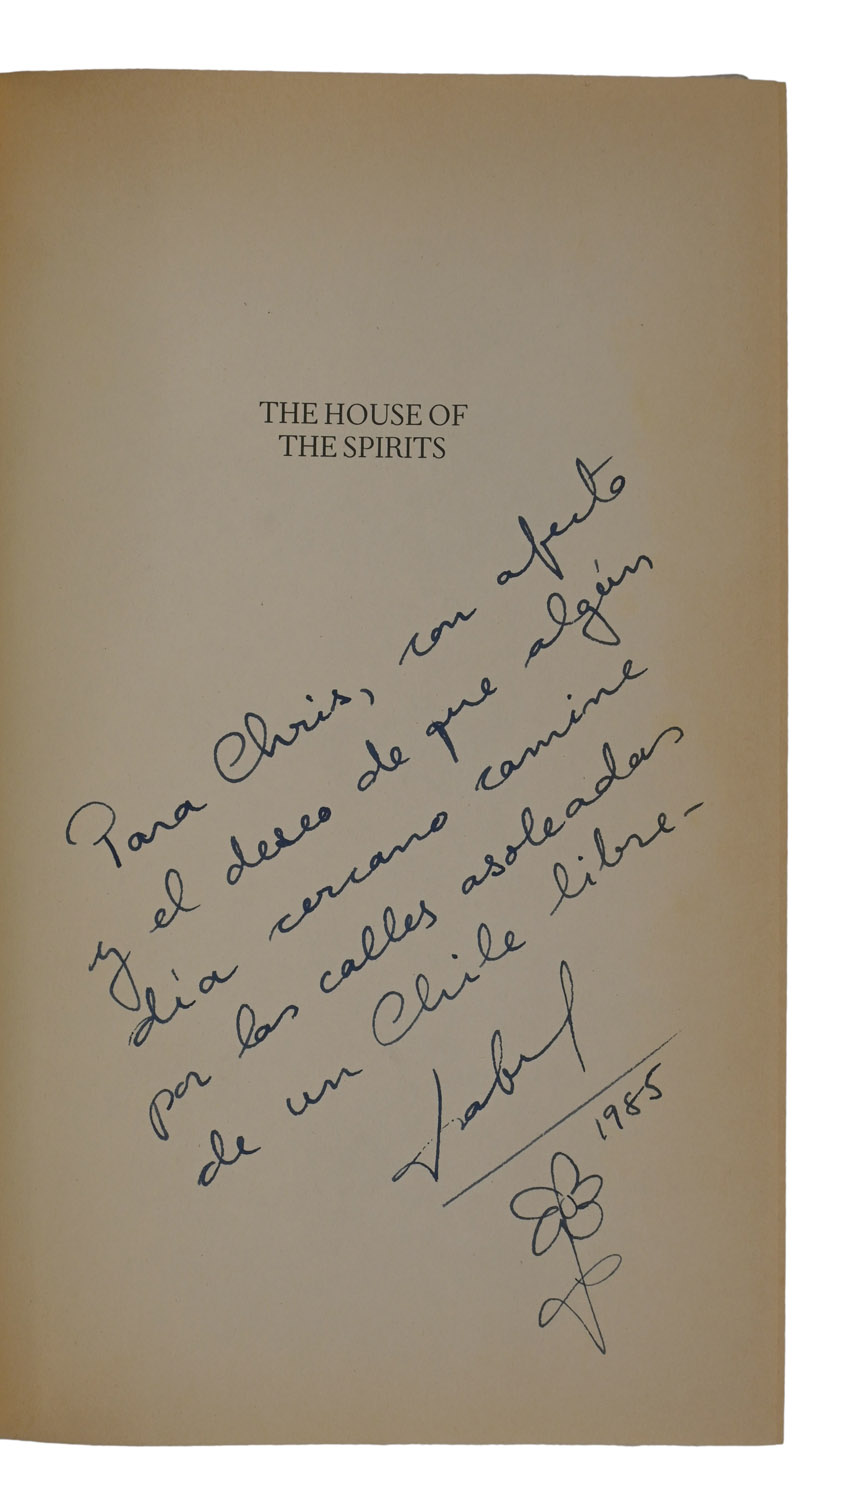 THE HOUSE OF
THE SPIRITS
Para Chris, con afecto
y el deseo de que algún
día cercano camine
por las calles asoleadas
de un Chile libre-
Isabel
1985